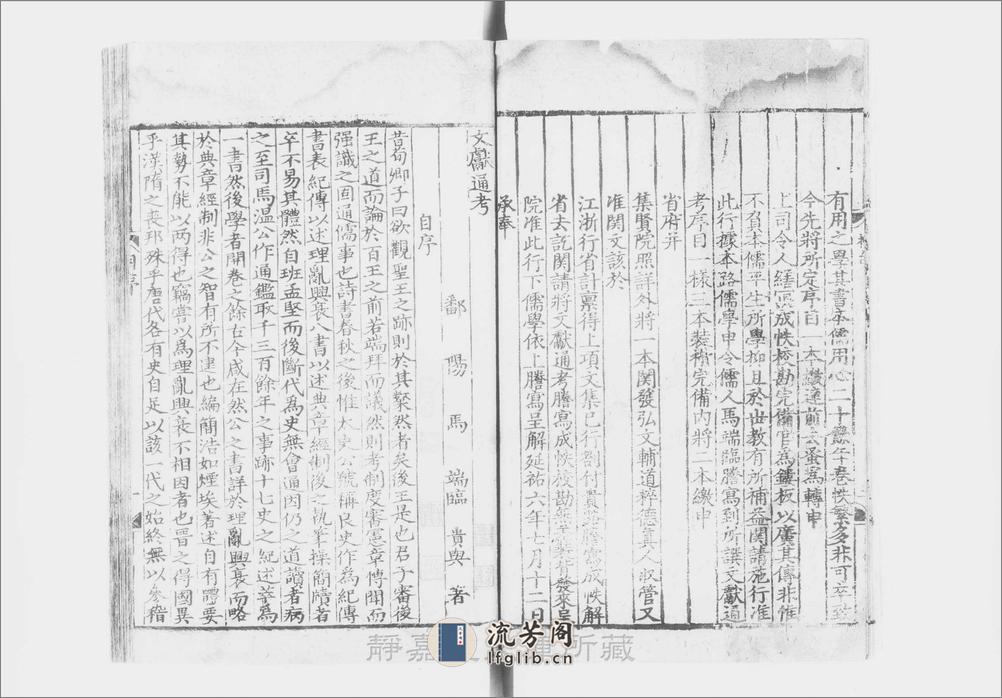 有用之學其書本儒用心二十餘年卷帙繁多非可卒致
今先將所定序目一本繳連前去蚤為轉申
上司令人繕寫成帙校勘完備官為鏤板以廣其傳非惟
不負本儒平生所學抑且於世教有所補益關請施行准
此行據本路儒學申令儒人馬端臨謄寫到所譔文獻通
考序目一樣三本裝褙完備內將二本繳申
省府并
集賢院照詳外將一本關發弘文輔道粹德真人收管又
准關文該於
江浙行省計稟得上項文集已行劄付謄寫成帙解
省去訖關請將文獻通考謄寫成帙校勘無差裝背發來
院准此行下儒學依上謄寫呈解延祐六年七月十二日
承奉
文獻通考
鄱陽馬端臨貴與著
自序
昔荀卿子曰欲觀聖王之跡則於其粲然者矣後王是也君子審後
王之道而論於百王之前若端拜而議然則考制度審憲章博聞而
强識之固通儒事也詩書春秋之後惟太史公號稱良史作為紀傳
書表紀傳以述理亂興衰八書以述典章經制後之執筆操簡牘者
卒不易其體然自班孟堅而後斷代為史無會通因仍之道讀者病
之至司馬溫公作通鑑取千三百餘年之事跡十七史之紀述萃為
一書然後學者開卷之餘古今咸在然公之書詳於理亂興衰而略
於典章經制非公之智有所不逮也編簡浩如煙埃著述自有體要
其勢不能以兩得也竊嘗以為理亂興衰不相因者也晉之得國異
乎漢隋之喪邦殊乎唐代各有史自足以該一代之始終無以參稽
流芳阁
lfglib.cn
靜嘉
所藏